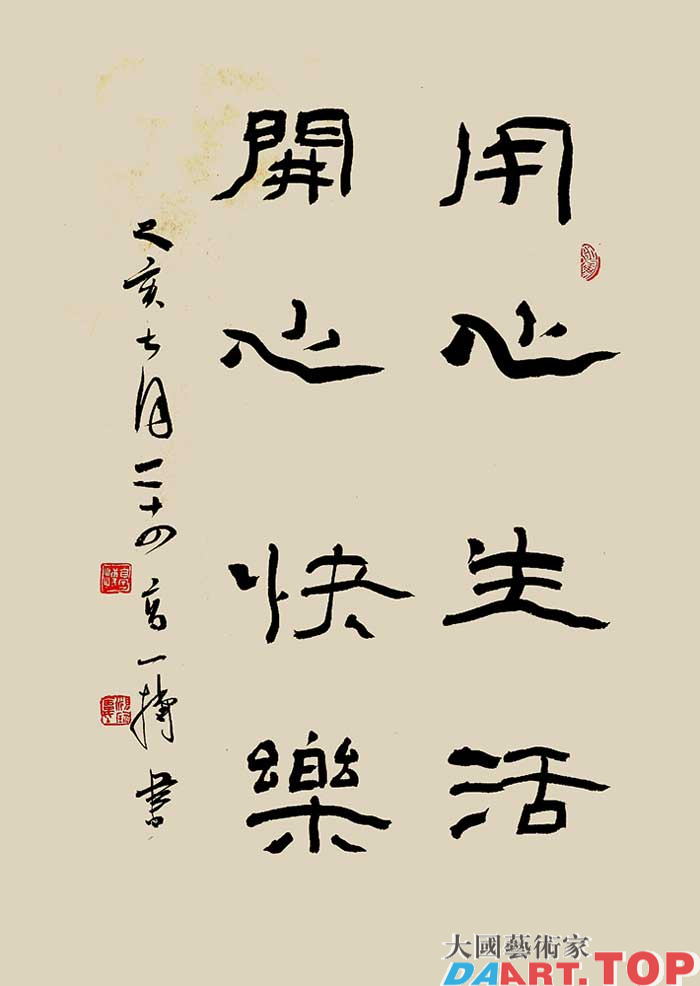 用心生活
開心快樂
己亥七月二十四高一搏書
大國藝術家
DAART.TOP